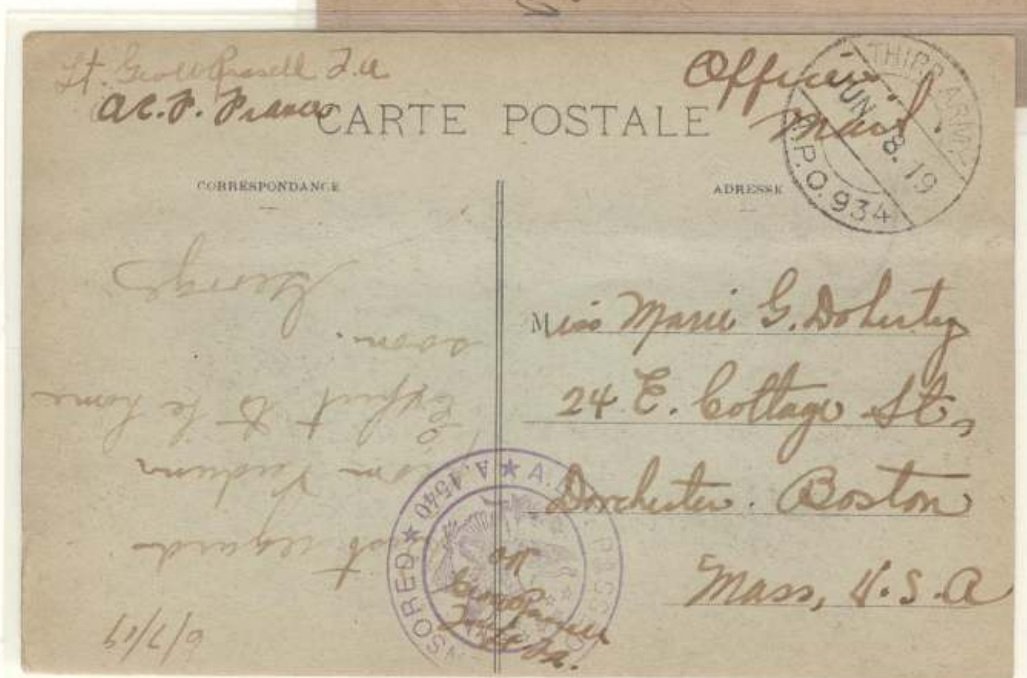 Lt. Geo W Russell F.A.
A.E.F. France
CARTE POSTALE
Officer's
Mail.
THIRD ARMY
JUN 8. 19
A.P.O. 934
CORRESPONDANCE
ADRESSE
6/7/19
regards
from Verdun
Expect to be home
soon.
George
Miss Marie G. Doherty
24 E. Cottage St.,
Dorchester. Boston
Mass, U.S.A
A.E.F. PASSED CENSORED ★ A.4540 ★
OK